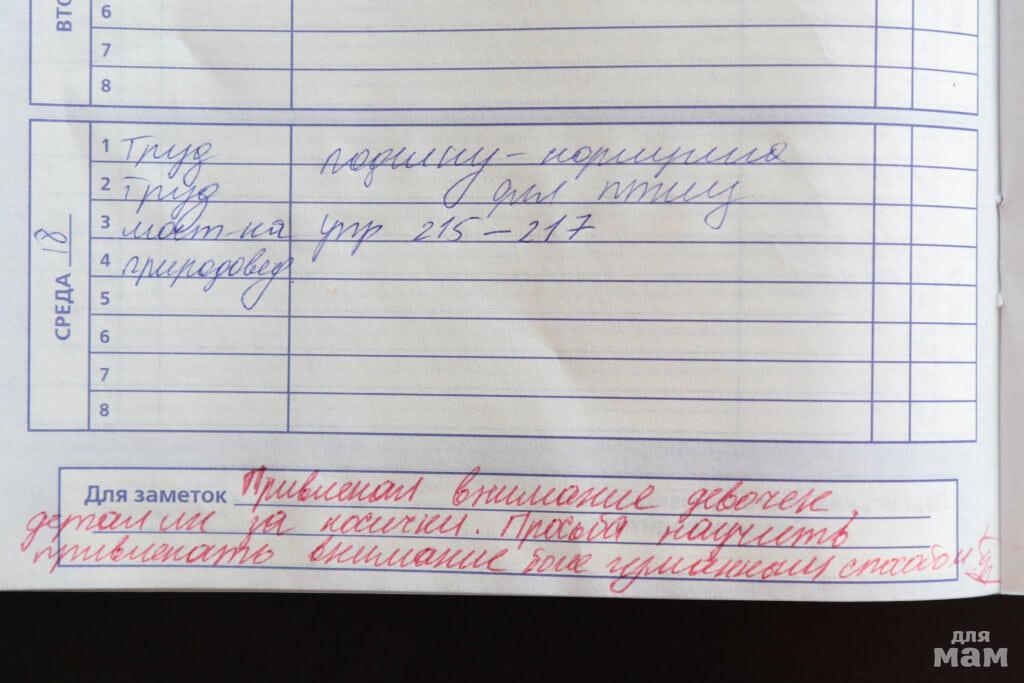 ВТО
6
7
8
СРЕДА 18
1 Труд
2 Труд для птиц
3 мат-ка упр 215 – 217
4 природовед.
5
6
7
8
Для заметок Привлекал внимание девочек,
дергал их за косички. Просьба научить
привлекать внимание более гуманным способом
для
мам